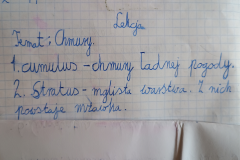 Lekcja
Temat: Chmury.
1. cumulus - chmury ładnej pogody.
2. Stratus - mglista warstwa. Z nich
powstaje mżawka.